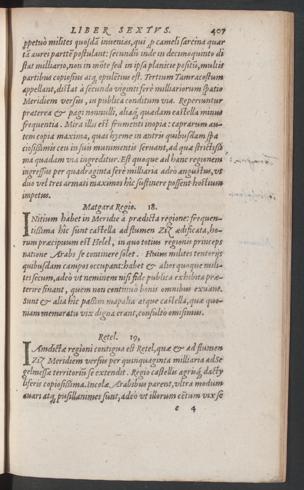 LIBER SEXTVS. 407
ppetuò milites quosdã inuenias, qui p cameli sarcina quar
tã aurei partẽ postulant: secundũ inde in decimoquinto di
stat milliario, non in mõte sed in ipsa planicie positũ, multis
partibus copiosius atq; opulẽtius est. Tertium Tamracostum
appellant, distat à secundo viginti ferè milliariorum spatio
Meridiem versus, in publica conditum via. Reperiuntur
praterea & pagi nonnulli, aliaq; quadam castella minus
frequentia. Mira illis est frumenti inopia: caprarum au-
tem copia maxima, quas hyeme in antris quibusdam spa
ciosissimis ceu in suis munimentis seruant, ad qua strictissi
ma quadam via ingreditur. Est quoque ad hanc regionem
ingressus per quadraginta ferè milliaria adeò angustus, vt
duo vel tres armati maximos hic sustinere possent hostium
impetus.
Matgara Regio. 18.
INitium habet in Meridie à prædicta regione: frequen-
tissima hic sunt castella ad flumen Ziz ædificata, ho-
rum præcipuum est Helel, in quo totius regionis princeps
natione Arabs se continere solet. Huius milites tentorijs
quibusdam campos occupant: habet & alios quoque mili-
tes secum, adeò vt neminem nisi fide publica exhibita præ-
terire sinant, quem non continuò bonis omnibus exuant.
Sunt & alia hic passim mapalia atque castella, quæ quo-
niam memoratu vix digna erant, consultò omisimus.
Retel. 19,
IAmdictæ regioni contigua est Retel, quæ & ad flumen
Ziz Meridiem versus per quinquaginta milliaria ad Se
gelmessæ territoriũ se extendit. Regio castellis agrisq; dacty
liferis copiosissima. Incolæ Arabibus parent, vltra modum
auari atq; pusillanimes sunt, adeò vt illorum cẽtum vix se
c 4